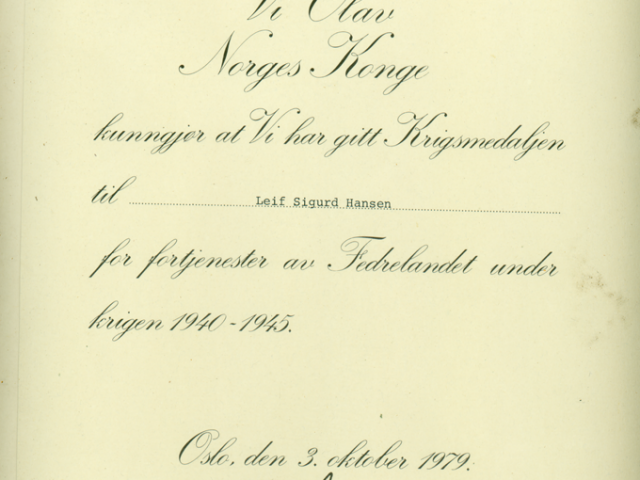 Vi Olav
Norges Konge
kunngjør at Vi har gitt Krigsmedaljen
til Leif Sigurd Hansen
for fortjenester av Fedrelandet under
krigen 1940-1945.
Oslo, den 3. oktober 1979.